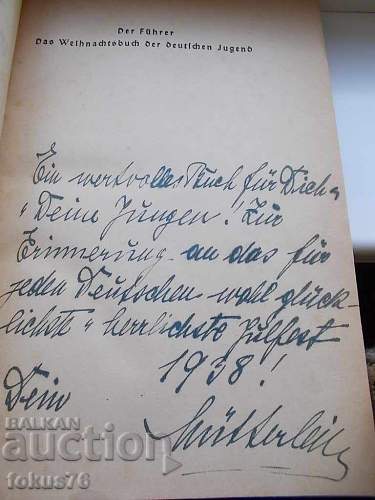 Der Führer
Das Weihnachtsbuch der deutschen Jugend
Ein wertvolles Buch für Dich u.
"Deine Jungen"! Zur
Erinnerung an das für
jeden Deutschen wohl glück-
lichste u. herrlichste Julfest
1938!
Dein
Mütterlein
BALKAN
auction
fokus76